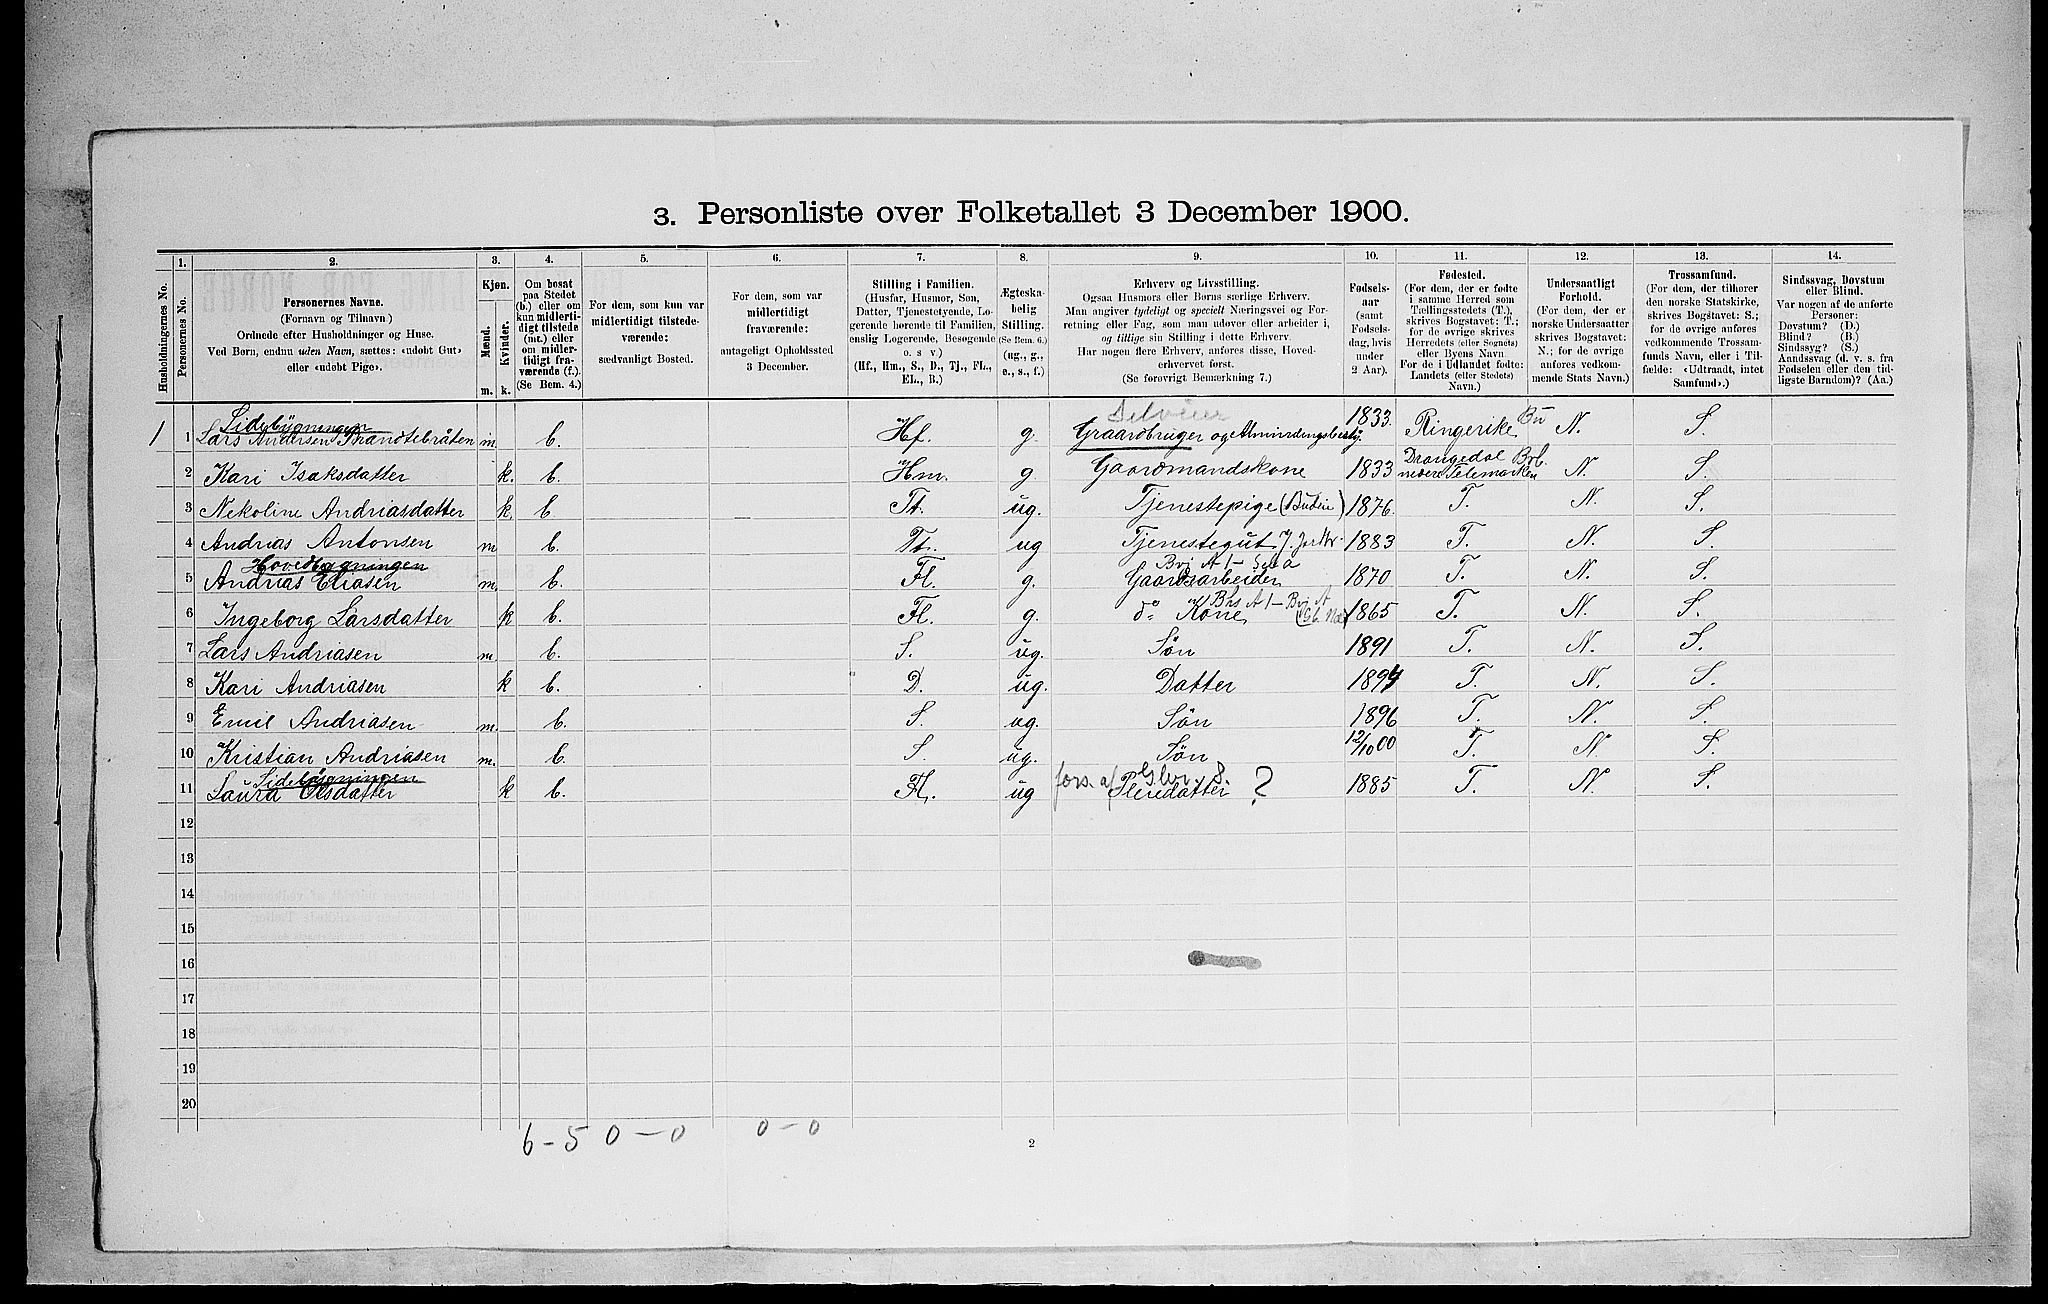 3. Personliste over Folketallet 3 December 1900.
Husholdningernes No.
1. Personernes No.
2. Personernes Navne.
(Fornavn og Tilnavn.)
Ordnede efter Husholdninger og Huse.
Ved Børn, endnu uden Navn, sættes: «udøbt Gut»
eller «udøbt Pige».
3. Kjøn.
Mænd. m.
Kvinder. k.
4. Om bosat
paa Stedet
(b.) eller om
kun midlerti-
digt tilstede
(mt.) eller
om midler-
tidigt fra-
værende (f.).
(Se Bem. 4.)
5. For dem, som kun var
midlertidigt tilstede-
værende:
sædvanligt Bosted.
6. For dem, som var
midlertidigt
fraværende:
antageligt Opholdssted
3 December.
7. Stilling i Familien.
(Husfar, Husmor, Søn,
Datter, Tjenestetyende, Lo-
gerende hørende til Familien,
enslig Logerende, Besøgende
o. s v.)
(Hf., Hm., S., D., Tj., FL.,
EL., B.)
8. Ægteska-
belig
Stilling.
(Se Bem. 6.)
(ug., g.,
e., s., f.)
9. Erhverv og Livsstilling.
Ogsaa Husmors eller Børns særlige Erhverv.
Man angiver tydeligt og specielt Næringsvei og For-
retning eller Fag, som man udøver eller arbeider i,
og tillige sin Stilling i dette Erhverv.
Har nogen flere Erhverv, anføres disse, Hoved-
erhvervet først.
(Se forøvrigt Bemerkning 7.)
10. Fødsels-
aar
(samt
Fødsels-
dag, hvis
under
2 Aar).
11. Fødested.
(For dem, der er fødte
i samme Herred som
Tællingsstedets (T.),
skrives Bogstavet: T.;
for de øvrige skrives
Herredets (eller Sognets)
eller Byens Navn.
For de i Udlandet fødte:
Landets (eller Stedets)
Navn.)
12. Undersaatligt
Forhold.
(For dem, der er
norske Undersaatter
skrives Bogstavet:
N.; for de øvrige
anføres vedkom-
mende Stats Navn.)
13. Trossamfund.
(For dem, der tilhører
den norske Statskirke,
skrives Bogstavet: S.;
for de øvrige anføres
vedkommende Trossam-
funds Navn, eller i Til-
fælde: «Udtraadt, intet
Samfund».)
14. Sindssvag, Døvstum
eller Blind.
Var nogen af de anførte
Personer:
Døvstum? (D.)
Blind? (B.)
Sindssyg? (S.)
Aandssvag (d. v. s. fra
Fødselen eller den tid-
ligste Barndom)? (Aa.)
Sidebygningen
1 1 Lars Andersen Brandtebråten m. b. Hf. g. Selveier Gaardbruger og Almindingsbesty. 1833. Ringerike Bu N. S.
2 Kari Isaksdatter k. b. Hm. g. Gaardmandskone 1833 Drangedal nedre Telemarken N. S.
3 Nekoline Andriasdatter k. b Tt. ug. Tjenestepige (Budeie) 1876. T. N. S.
4 Andrias Antonsen m b. Tt. ug Tjenestegut 1883 T. N. S.
Hovedbygningen
5 Andrias Eliasen m. b. Fl. g. Gaardsarbeider 1870 T. N. S.
6 Ingeborg Larsdatter k b. Fl. g. do Kone 1865 T. N. S.
7 Lars Andriasen m. b. S. ug. Søn 1891 T. N. S.
8 Kari Andriasen k b. D. ug. Datter 1894 T. N. S.
9 Emil Andriasen m. b. S. ug. Søn 1896 T. N. S.
10 Kristian Andriasen m. b. S. ug. Søn 12/10 00 T. N S.
Sidebygningen
11 Laura Olsdatter k b. Fl. ug fors. af Pleiedatter ? 1885 T. N. S.
12
13
14
15
16
17
18
19
20
6-5 0-0 0-0
2